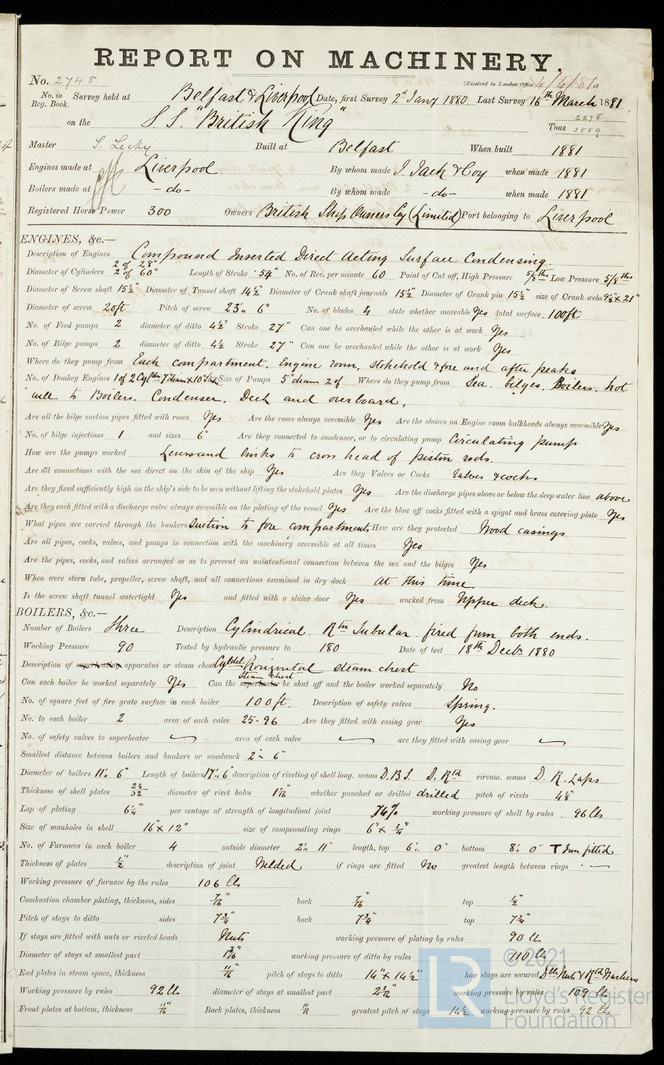 REPORT ON MACHINERY.
No. 2748 (Received in London Office 4/6/81
No. in Reg. Book. Survey held at Belfast & Liverpool Date, first Survey 2d Jany 1880 Last Survey 16th March 1881
on the S.S. "British King" Tons 2278 3559
Master S. Lecky Built at Belfast When built 1881
Engines made at Liverpool By whom made J. Jack & Coy when made 1881
Boilers made at -do- By whom made -do- when made 1881
Registered Horse Power 300 Owners British Ship Owners Cy (Limited) Port belonging to Liverpool
ENGINES, &c.—
Description of Engines Compound Inverted Direct Acting Surface Condensing.
Diameter of Cylinders 2 of 28" 2 of 60" Length of Stroke 54" No. of Rev. per minute 60 Point of Cut off, High Pressure 5/8ths Low Pressure 5/8ths
Diameter of Screw shaft 15½" Diameter of Tunnel shaft 14½" Diameter of Crank shaft journals 15½" Diameter of Crank pin 15½" size of Crank webs 9¾ x 21"
Diameter of screw 20ft Pitch of screw 23.. 6" No. of blades 4 state whether moveable Yes total surface 100ft
No. of Feed pumps 2 diameter of ditto 4½" Stroke 27" Can one be overhauled while the other is at work Yes
No. of Bilge pumps 2 diameter of ditto 4½" Stroke 27" Can one be overhauled while the other is at work Yes
Where do they pump from Each compartment. Engine room, stokehold & fore and after peaks
No. of Donkey Engines 1 of 2 Cyldrs 7"diam x 10"Size of Pumps 5"diam 2 of Where do they pump from Sea, bilges, Boilers. hot
well to Boilers. Condenser. Deck and overboard.
Are all the bilge suction pipes fitted with roses Yes Are the roses always accessible Yes Are the sluices on Engine room bulkheads always accessible Yes
No. of bilge injections 1 and sizes 6" Are they connected to condenser, or to circulating pump Circulating pump
How are the pumps worked Levers and links to cross head of piston rods.
Are all connections with the sea direct on the skin of the ship Yes Are they Valves or Cocks Valves & cocks
Are they fixed sufficiently high on the ship's side to be seen without lifting the stokehold plates Yes Are the discharge pipes above or below the deep water line above
Are they each fitted with a discharge valve always accessible on the plating of the vessel Yes Are the blow off cocks fitted with a spigot and brass covering plate Yes
What pipes are carried through the bunkers Suction to fore compartments How are they protected Wood casings
Are all pipes, cocks, valves, and pumps in connection with the machinery accessible at all times Yes
Are the pipes, cocks, and valves arranged so as to prevent an unintentional connection between the sea and the bilges Yes
When were stern tube, propeller, screw shaft, and all connections examined in dry dock At this time
Is the screw shaft tunnel watertight Yes and fitted with a sluice door Yes worked from Upper deck.
BOILERS, &c.—
Number of Boilers Three Description Cylindrical. Rtn Tubular fired from both ends.
Working Pressure 90 Tested by hydraulic pressure to 180 Date of test 18th Decbr 1880
Description of superheating apparatus or steam chest Cyldrl Horizontal steam chest
Can each boiler be worked separately Yes Can the superheater Steam Chest be shut off and the boiler worked separately No
No. of square feet of fire grate surface in each boiler 100ft. Description of safety valves Spring.
No. to each boiler 2 area of each valve 25.96 Are they fitted with easing gear Yes
No. of safety valves to superheater area of each valve are they fitted with easing gear
Smallest distance between boilers and bunkers or woodwork 2.. 6"
Diameter of boilers 11.. 6" Length of boilers 17.. 6 description of riveting of shell long. seams D.B.S. D. Rtd circum. seams D. R. Laps
Thickness of shell plates diameter of rivet holes whether punched or drilled drilled pitch of rivets
Lap of plating per centage of strength of longitudinal joint 74% working pressure of shell by rules 96 lbs
Size of manholes in shell 16" x 12" size of compensating rings 6" x ¾"
No. of Furnaces in each boiler 4 outside diameter 2.. 11" length, top 6.. 0" bottom 8.. 0" T Iron fitted
Thickness of plates ½" description of joint Welded if rings are fitted No greatest length between rings -
Working pressure of furnace by the rules 106 lbs
Combustion chamber plating, thickness, sides 7/16" back 7/16" top ½"
Pitch of stays to ditto sides 7¾" back 7¾" top 7¾"
If stays are fitted with nuts or riveted heads Nuts working pressure of plating by rules 90 lb
Diameter of stays at smallest part working pressure of ditto by rules 110 lbs
End plates in steam space, thickness pitch of stays to ditto 14" x 14½" how stays are secured Dble Nuts & Rtd Washers
Working pressure by rules 92 lb diameter of stays at smallest part working pressure by rules 109 lb.
Front plates at bottom, thickness Back plates, thickness greatest pitch of stays 14½ working pressure by rules 92 lbs
© 2021
LR Lloyd's Register
Foundation